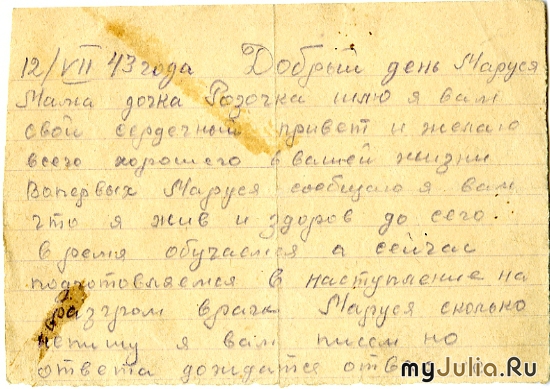 12/VII 43 года Добрый день Маруся
Мама дочка Розочка шлю я вам
свой сердечный привет и желаю
всего хорошего в вашей жизни
Вопервых Маруся сообщаю я вам
что я жив и здоров до сего
время обучаемся а сейчас
подготовляемся в наступление на
разгром врага Маруся сколько
непишу я вам писем но
ответа дождатся
myJulia.Ru